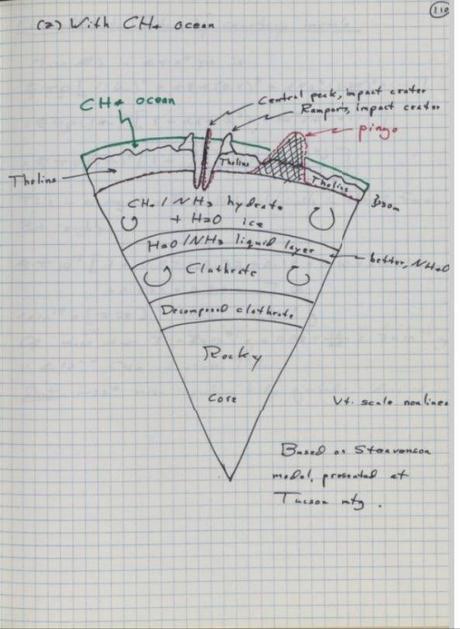 110
(2) With CH4 ocean
Central peak, impact crater
CH4 ocean
Ramparts, impact crater
pingo
Tholins
Tholins
Tholins
CH4/NH3 hydrate
+ H2O ice
H2O/NH3 liquid layer
better, NH4O
Clathrate
Decomposed clathrate
Rocky
core
Vt. scale nonlinear
Based on Steavenson
model, presented at
Tucson mtg.